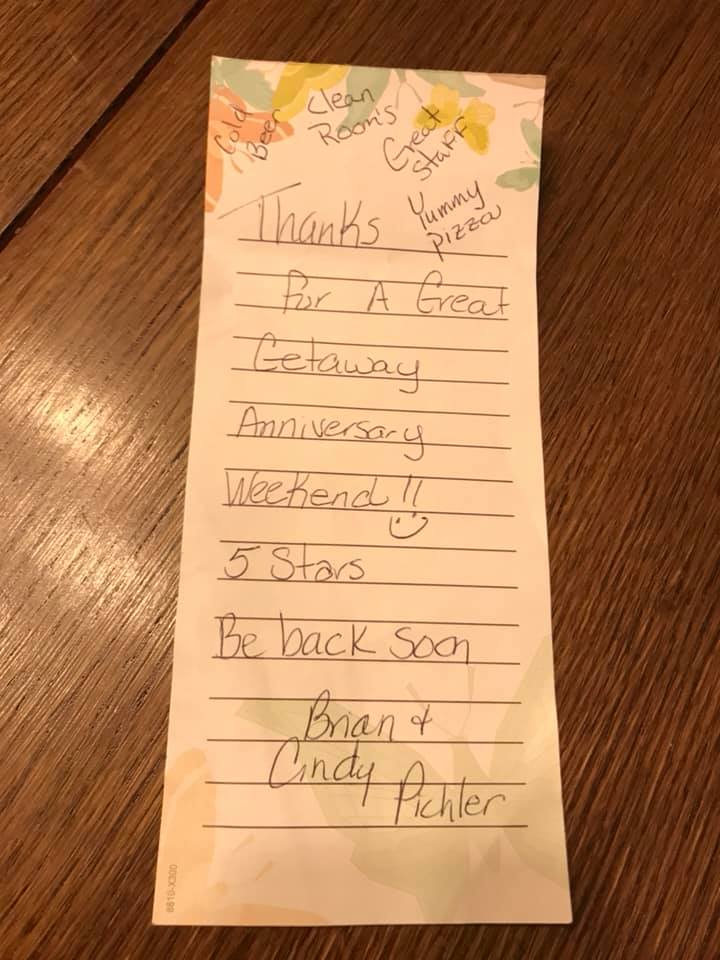 Cold
Beer
Clean
Rooms
Great
Staff
Yummy
pizza
Thanks
For A Great
Getaway
Anniversary
Weekend!!
5 Stars
Be back soon
Brian &
Cindy
Pichler
6610-X300